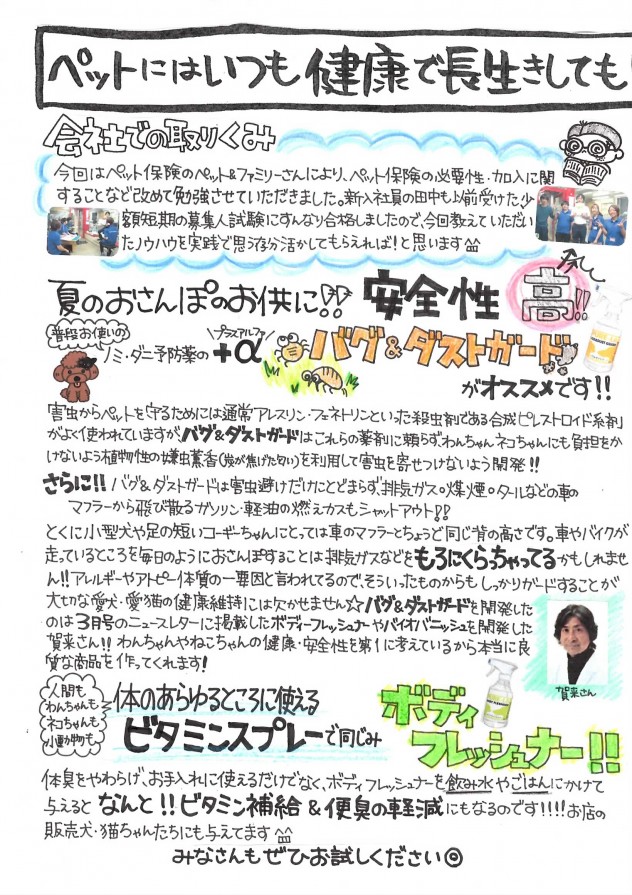 ペットにはいつも健康で長生きしても
会社での取りくみ
今回はペット保険のペット&ファミリーさんにより、ペット保険の必要性・加入に関
することなど改めて勉強させていただきました。新入社員の田中も以前受けた少
額短期の募集人試験にすんなり合格しましたので、今回教えていただい
たノウハウを実践で思う存分活かしてもらえれば!と思います
夏のおさんぽのお供に!! 安全性 高!!
普段お使いの
ノミ・ダニ予防薬の
プラスアルファ
+α
バグ&ダストガード
がオススメです!!
害虫からペットを守るためには通常アレスリン・フェネトリンといった殺虫剤である合成ピレストロイド系剤」
がよく使われていますが、バグ&ダストガードはこれらの薬剤に頼らずわんちゃんネコちゃんにも負担をか
けないよう植物性の嫌虫薫香(炭が焦げた匂い)を利用して害虫を寄せつけないよう開発!!
さらに!! バグ&ダストガードは害虫避けだけにとどまらず、排気ガス・煤煙・タールなどの車の
マフラーから飛び散るガソリン・軽油の燃えカスもシャットアウト!!
とくに小型犬や足の短いコーギーちゃんにとっては車のマフラーとちょうど同じ背の高さです。車やバイクが
走っているところを毎日のようにおさんぽすることは排気ガスなどをもろにくらっちゃってるかもしれませ
ん!!アレルギーやアトピー体質の一要因と言われてるので、そういったものからもしっかりガードすることが
大切な愛犬・愛猫の健康維持には欠かせません☆バグ&ダストガードを開発した
のは3月号のニュースレターに掲載したボディーフレッシュナーやバイオバニッシュを開発した
賀来さん!!わんちゃんやねこちゃんの健康・安全性を第1に考えているから本当に良
質な商品を作ってくれます!
賀来さん
人間も
わんちゃんも
ネコちゃんも
小動物も
体のあらゆるところに使える
ビタミンスプレーで同じみ
ボディ
フレッシュナー!!
体臭をやわらげ、お手入れに使えるだけでなく、ボディフレッシュナーを飲み水やごはんにかけて
与えると なんと!!ビタミン補給&便臭の軽減にもなるのです!!!!お店の
販売犬・猫ちゃんたちにも与えてます
みなさんもぜひお試しください◎